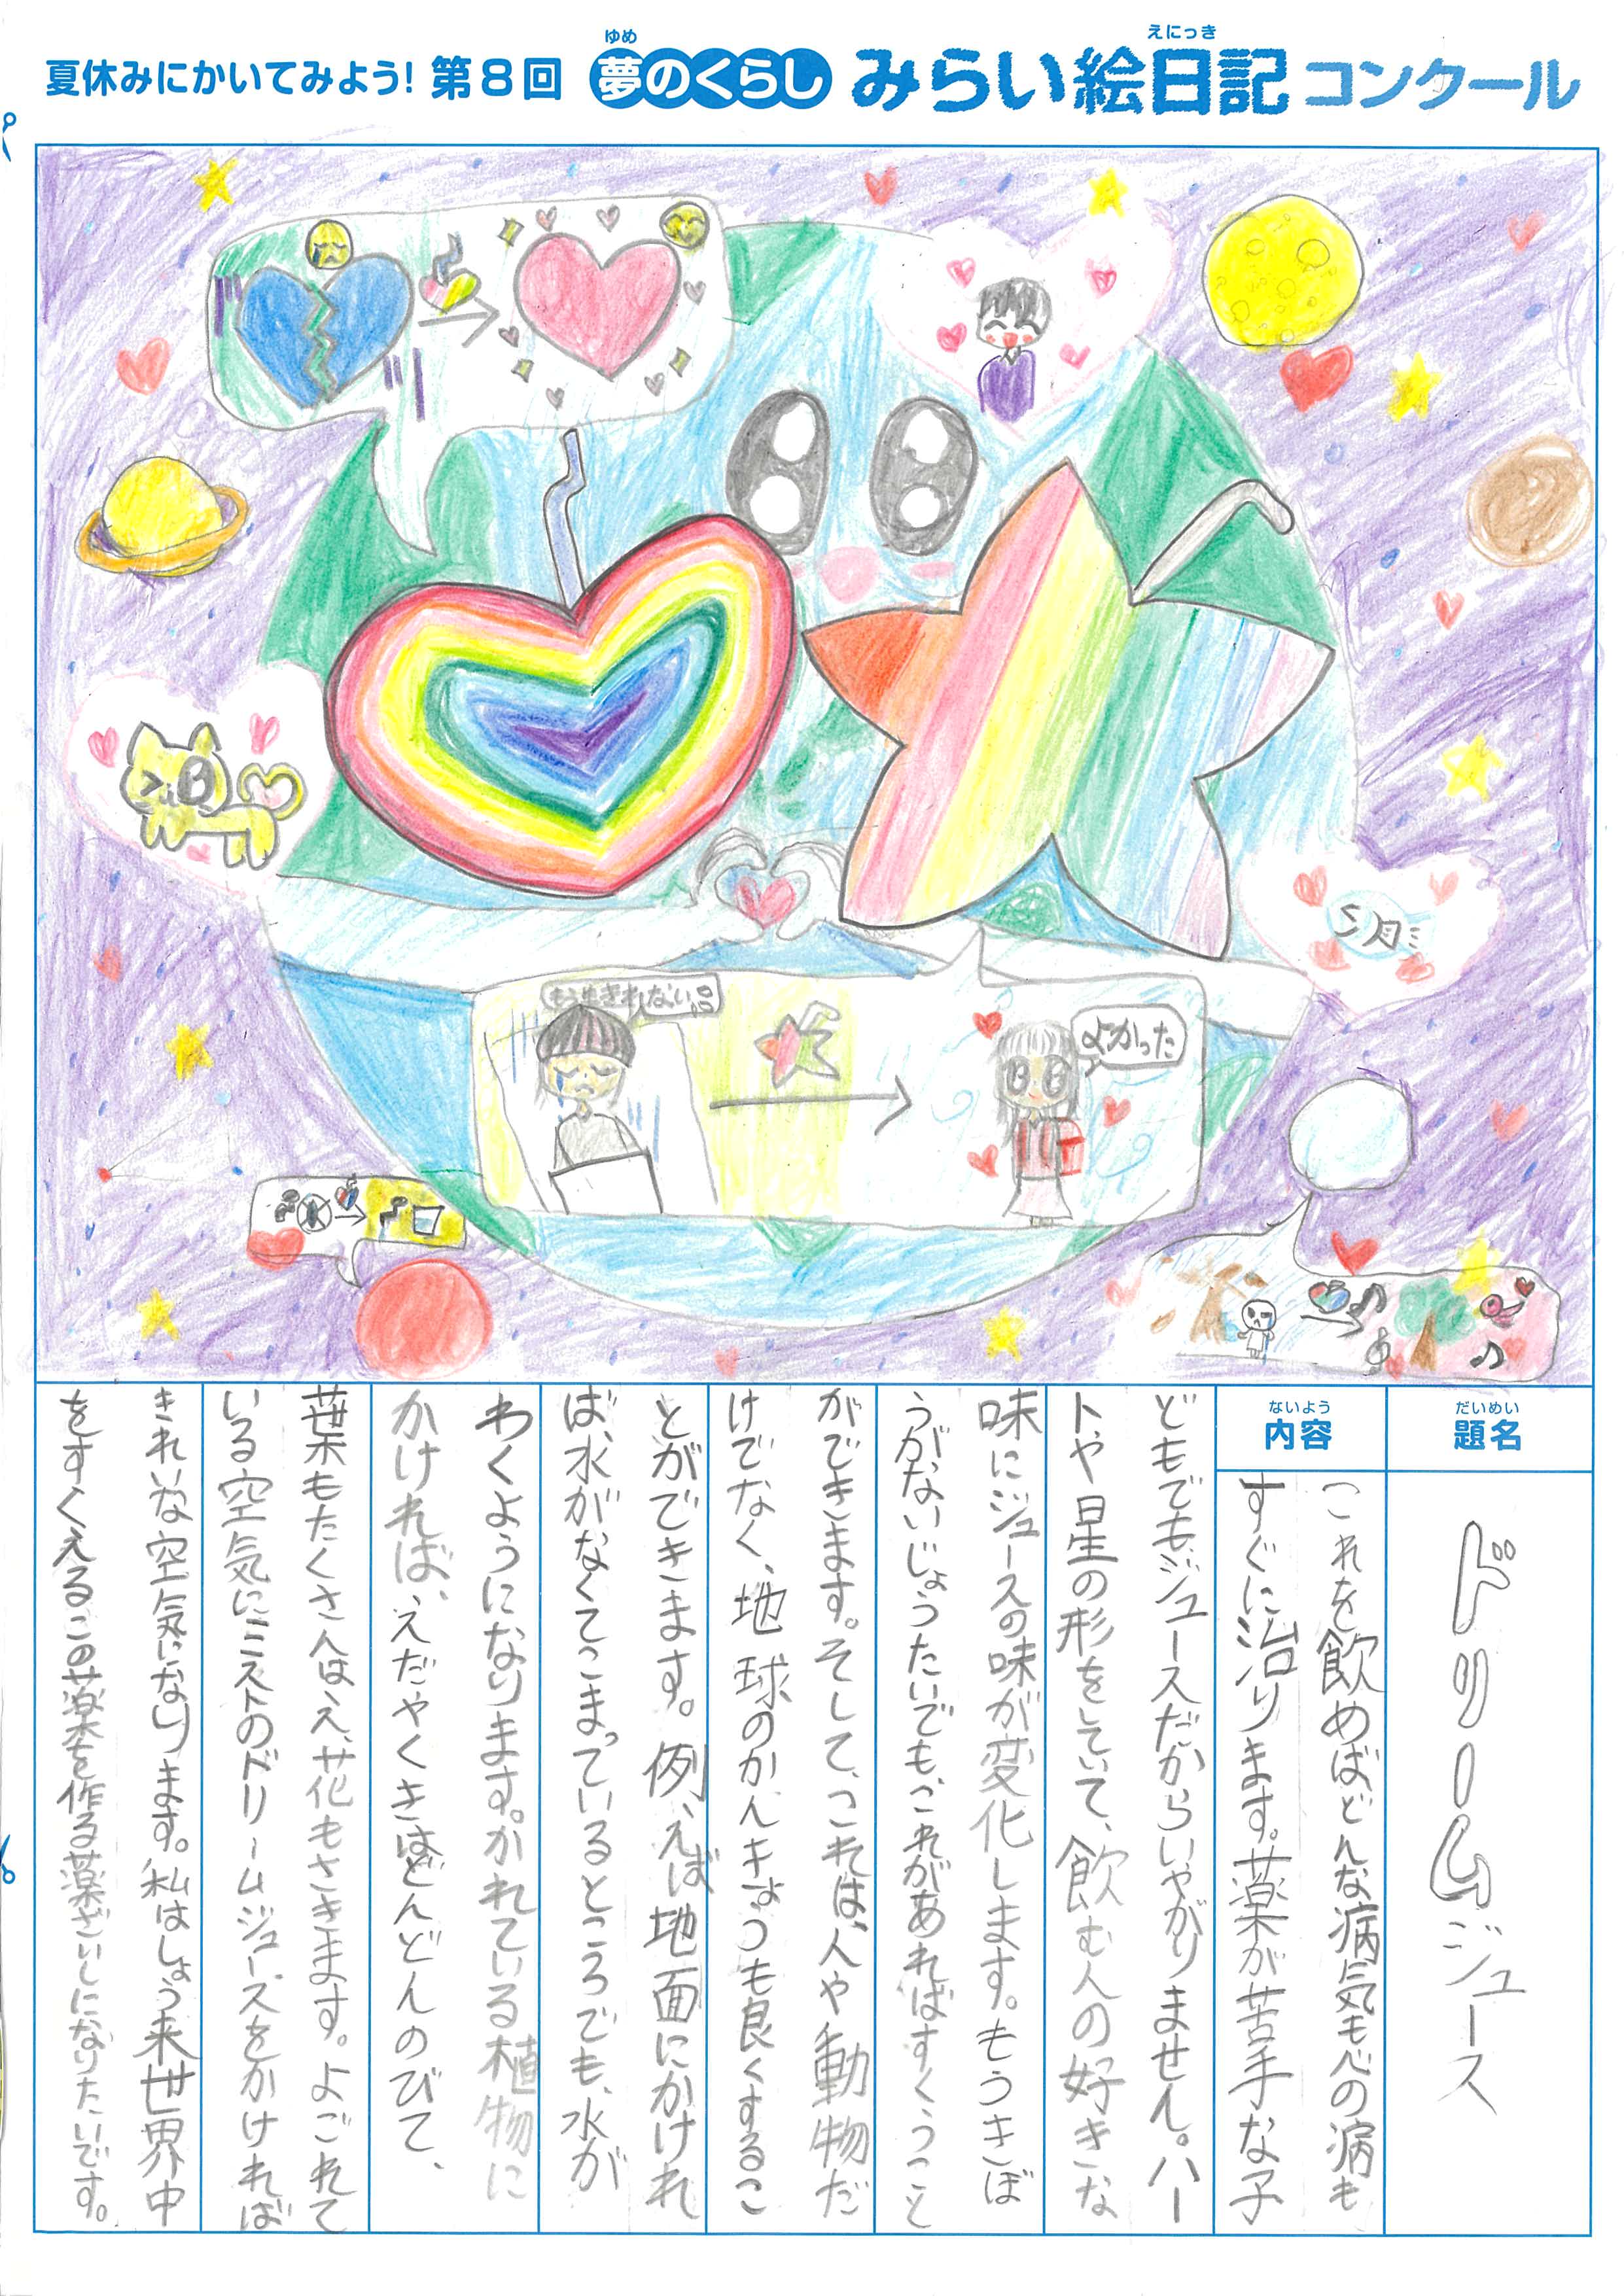 夏休みにかいてみよう!第8回 夢のくらし みらい絵日記コンクール
ゆめ
えにっき
もう生きれない
よかった
だいめい
題名
ドリームジュース
ないよう
内容
これを飲めばどんな病気も心の病も
すぐに治ります。薬が苦手な子
どもでもジュースだからいやがりません。ハー
トや星の形をしていて、飲む人の好きな
味にジュースの味が変化します。もうきぼ
うがないじょうたいでもこれがあればすくうこと
ができます。そして、これは、人や動物だ
けでなく、地球のかんきょうも良くするこ
とができます。例えば地面にかけれ
ば、水がなくてこまっているところでも、水が
わくようになります。かれている植物に
かければ、えだやくきはどんどんのびて、
葉もたくさんはえ、花もさきます。よごれて
いる空気にミストのドリームジュースをかければ
きれいな空気になります。私はしょう来世界中
をすくえるこの薬を作る薬ざいしになりたいです。